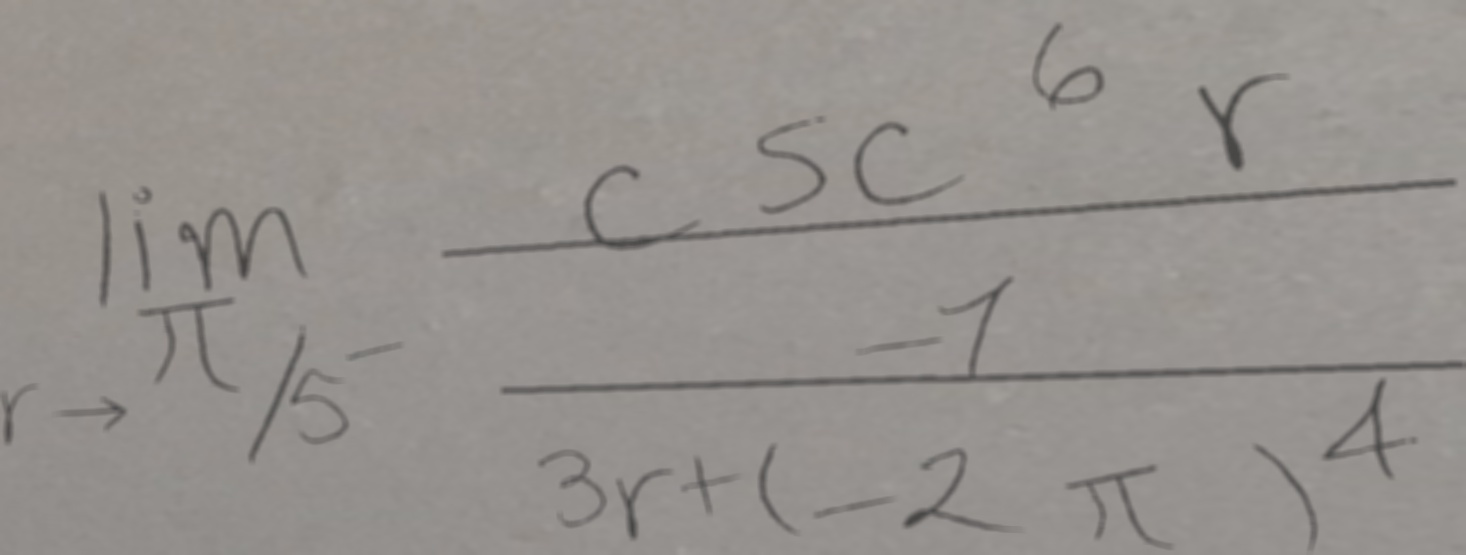 lim r → π/5⁻ csc⁶ r
-1
3r+(-2π)⁴